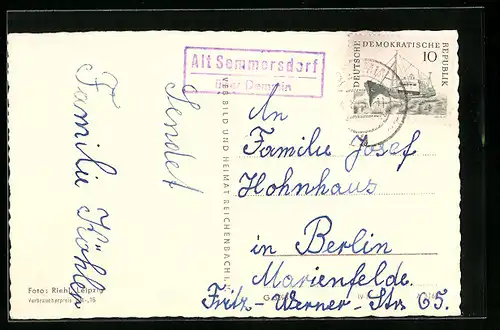 Alt Sommersdorf
über Demmin
DEUTSCHE DEMOKRATISCHE REPUBLIK
10
Sendet
Familie Köhler
An
Familie Josef
Hohnhaus
in Berlin
Marienfelde.
Fritz-Werner-Str 65.
BILD UND HEIMAT REICHENBACH I. V.
Foto: Riehl, Leipzig
Verbraucherpreis